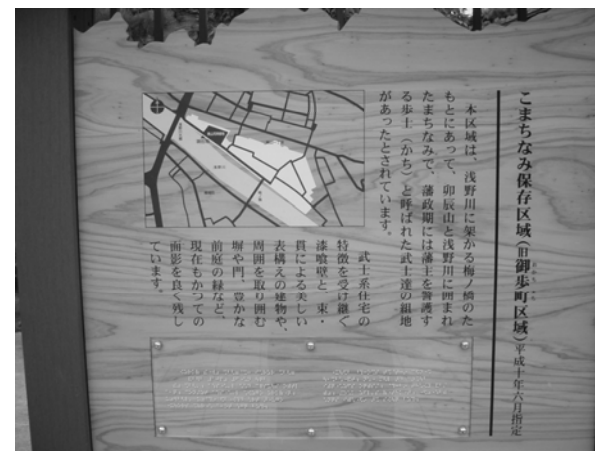 こまちなみ保存区域(旧御歩町区域)平成十年六月指定
本区域は、浅野川に架かる梅ノ橋のた
もとにあって、卯辰山と浅野川に囲まれ
たまちなみで、藩政期には藩主を警護す
る歩士(かち)と呼ばれた武士達の組地
があったとされています。
武士系住宅の
特徴を受け継ぐ
漆喰壁と、束・
貫による美しい
表構えの建物や、
周囲を取り囲む
塀や門、豊かな
前庭の緑など、
現在もかつての
面影を良く残し
ています。